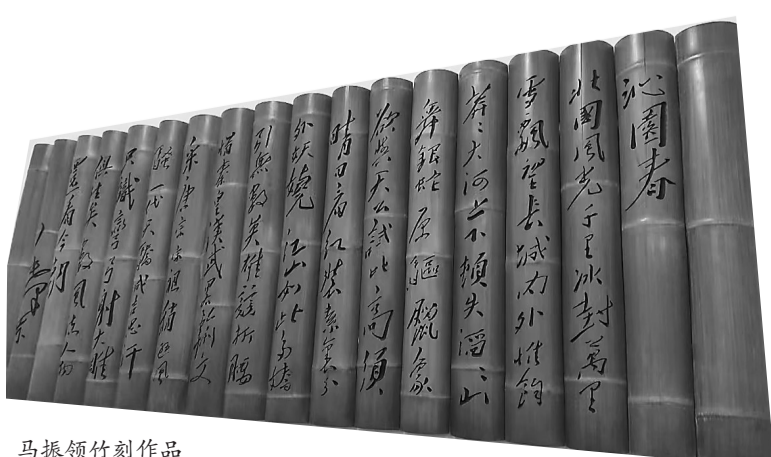 沁園春
北國風光千里冰封萬里
雪飄望長城内外惟餘
莽〻大河上下頓失滔〻山
舞銀蛇原驅臘象
欲與天公試比高須
晴日看紅裝素裹分
外妖嬈江山如此多嬌
引無數英雄競折腰
惜秦皇漢武略輸文
采唐宗宋祖稍遜風
騷一代天驕成吉思汗
只識彎弓射大雕
俱往矣數風流人物
還看今朝
毛澤東
马振领竹刻作品